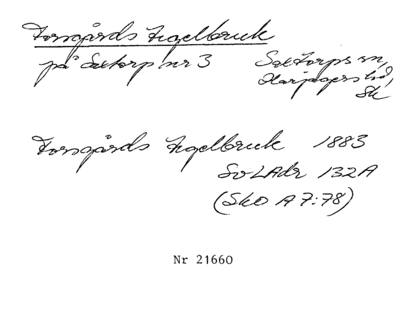 Forsgårds Tegelbruk
på Saltorp nr 3 Saxtorps sn,
Harjagers hd,
Sk
Forsgårds Tegelbruk 1883
Sv LAdr 132A
(SkO A 7:78)
Nr 21660